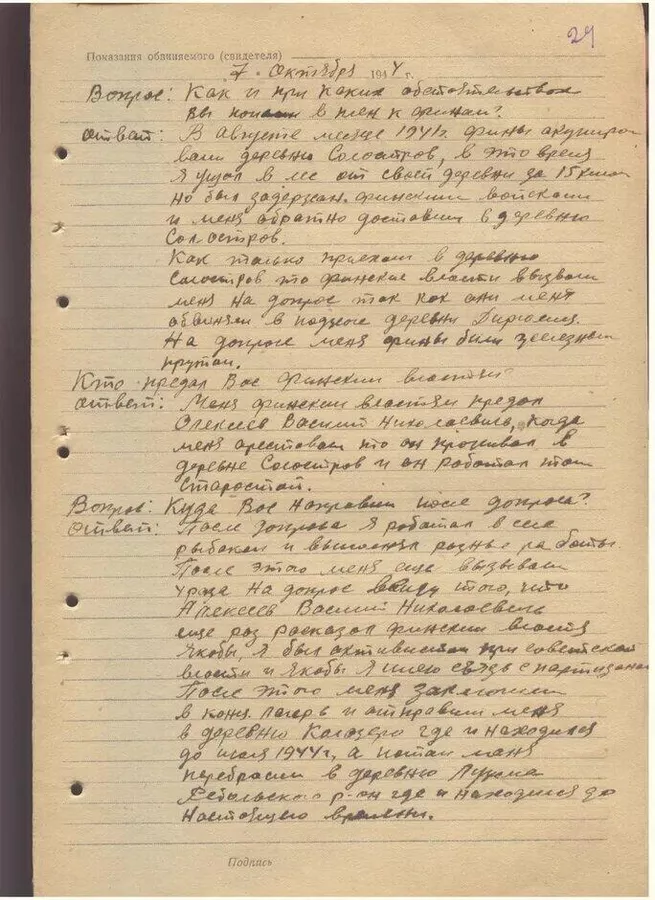 29
Показания обвиняемого (свидетеля)
7. Октября 1944 г.
Вопрос: Как и при каких обстоятельствах
вы попали в плен к финам?
Ответ: В Августе месяце 1941г. фины окупиро
вали деревню Солостров, в это время
Я ушол в лес от своей деревни за 15 килом
но был задержан финскими войсками
и меня обратно доставили в деревню
Солостров.
Как только приехали в деревню
Солостров то финские власти вызвали
меня на допрос так как они меня
обвиняли в поджоге деревни
На допросе меня фины били железным
прутом.
Кто предал Вас финским властям?
Ответ: Меня финским властям предал
Алексеев Василий Николаевич, когда
меня арестовали то он проживал в
деревне Солостров и он работал там
Старостой.
Вопрос: Куда Вас направили после допроса?
Ответ: После допроса Я работал в селе
рыбаком и выполнял разные работы
После этого меня еще вызывали
2 раза на допрос ввиду того, что
Алексеев Василий Николаевичь
еще раз расказал финским властям
Якобы, Я был активистом при советской
власти и якобы Я имею связь с партизанами
После этого меня заключили
в конц. лагерь и отправили меня
в деревню Колозеро где и находился
до июля 1944г, а потом меня
перебросили в деревню
Ребольского р-он где и находился до
настоящего времени.
Подпись